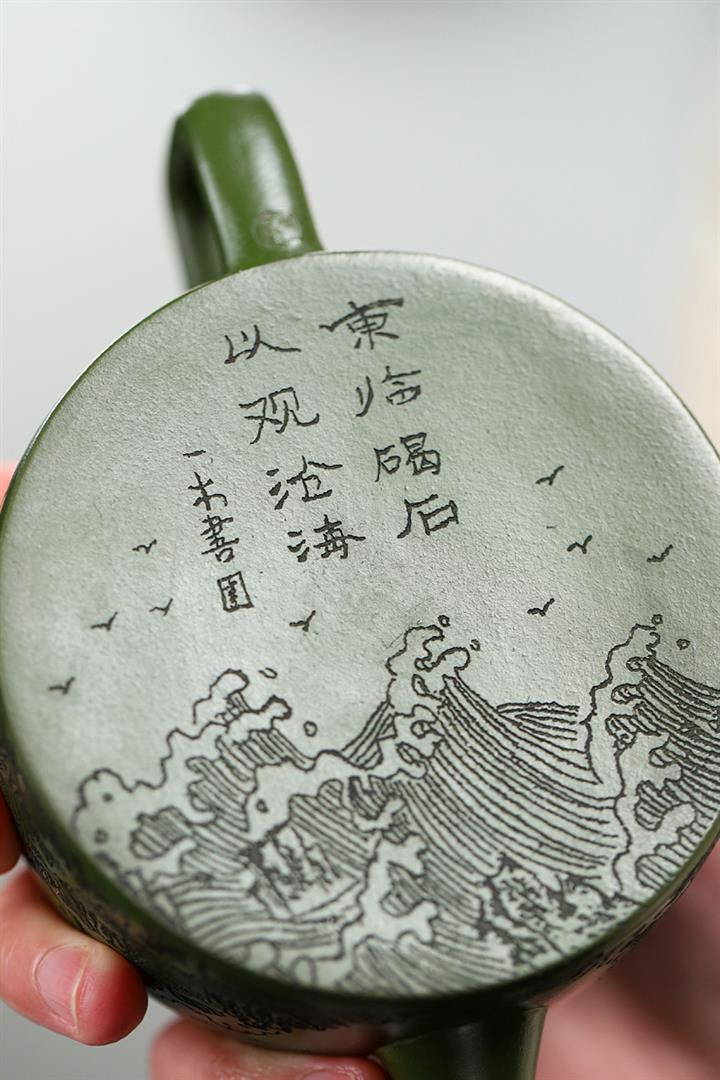 東临碣石
以观沧海
一木書